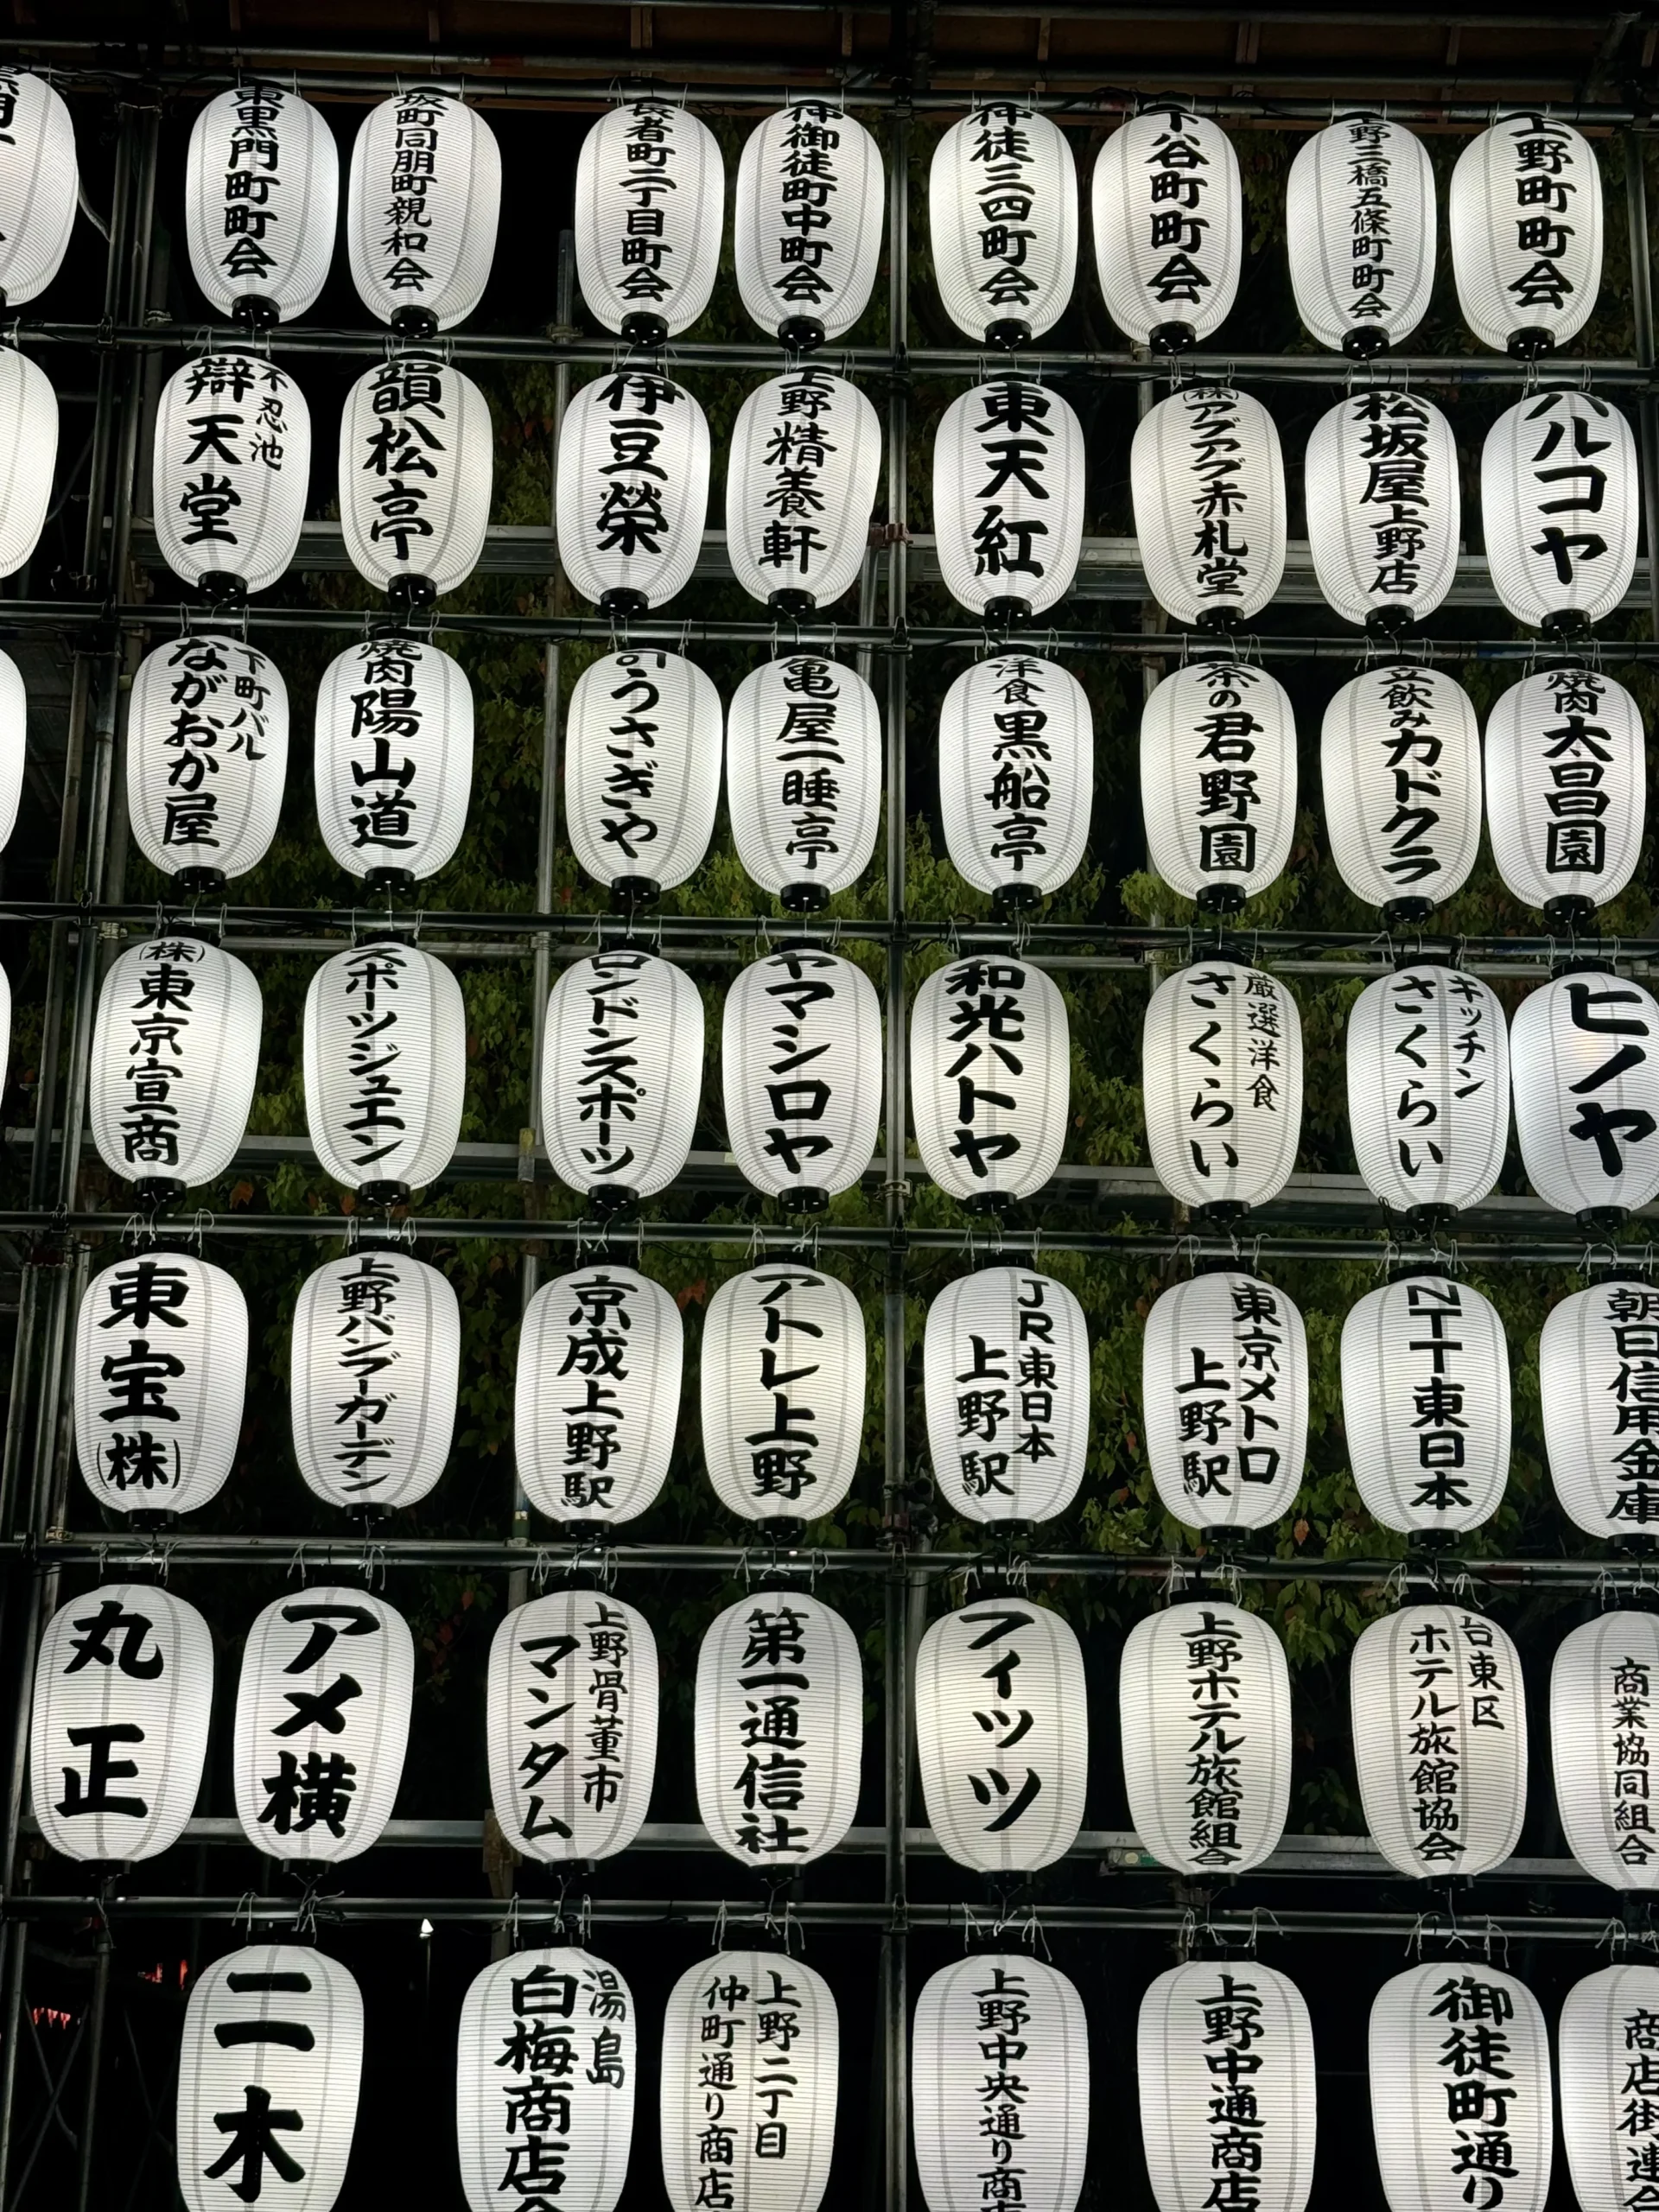 東黒門町町会
坂町同朋町親和会
長者町二丁目町会
仲御徒町中町会
仲徒三四町会
下谷町町会
上野三橋五條町町会
上野町町会
不忍池
辯天堂
韻松亭
伊豆榮
上野精養軒
東天紅
(株)アグアグ赤札堂
松坂屋上野店
ハルコヤ
下町バル
ながおか屋
焼肉陽山道
うさぎや
亀屋一睡亭
洋食黒船亭
茶の君野園
立飲みカドクラ
焼肉太昌園
(株)東京宣商
スポーツジュエン
ロンドンスポーツ
ヤマシロヤ
和光ハトヤ
厳選洋食
さくらい
キッチン
さくらい
ヒノヤ
東宝(株)
上野バンブーガーデン
京成上野駅
アトレ上野
JR東日本
上野駅
東京メトロ
上野駅
NTT東日本
朝日信用金庫
丸正
アメ横
上野骨董市
マンタム
第一通信社
フィッツ
上野ホテル旅館組合
台東区
ホテル旅館協会
商業協同組合
二木
湯島
白梅商店会
上野二丁目
仲町通り商店
上野中央通り商店
上野中通商店
御徒町通り
商店街連合